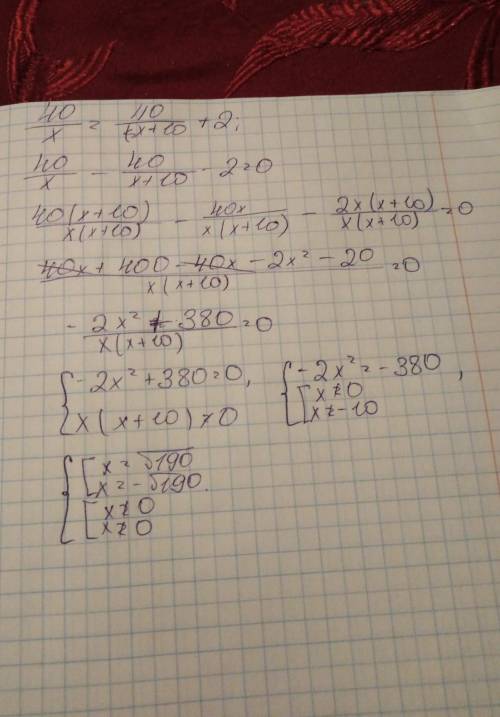 40/x = 40/(x+10) + 2;
40/x - 40/(x+10) - 2=0
40(x+10)/x(x+10) - 40x/x(x+10) - 2x(x+10)/x(x+10) =0
40x + 400 - 40x - 2x² - 20/x(x+10) =0
- 2x² + 380/x(x+10) =0
{ -2x² + 380=0, { -2x² = -380,
x(x+10) ≠ 0 [ x≠0
x≠-10
{ [ x = √190
x = -√190.
[ x≠0
x≠0